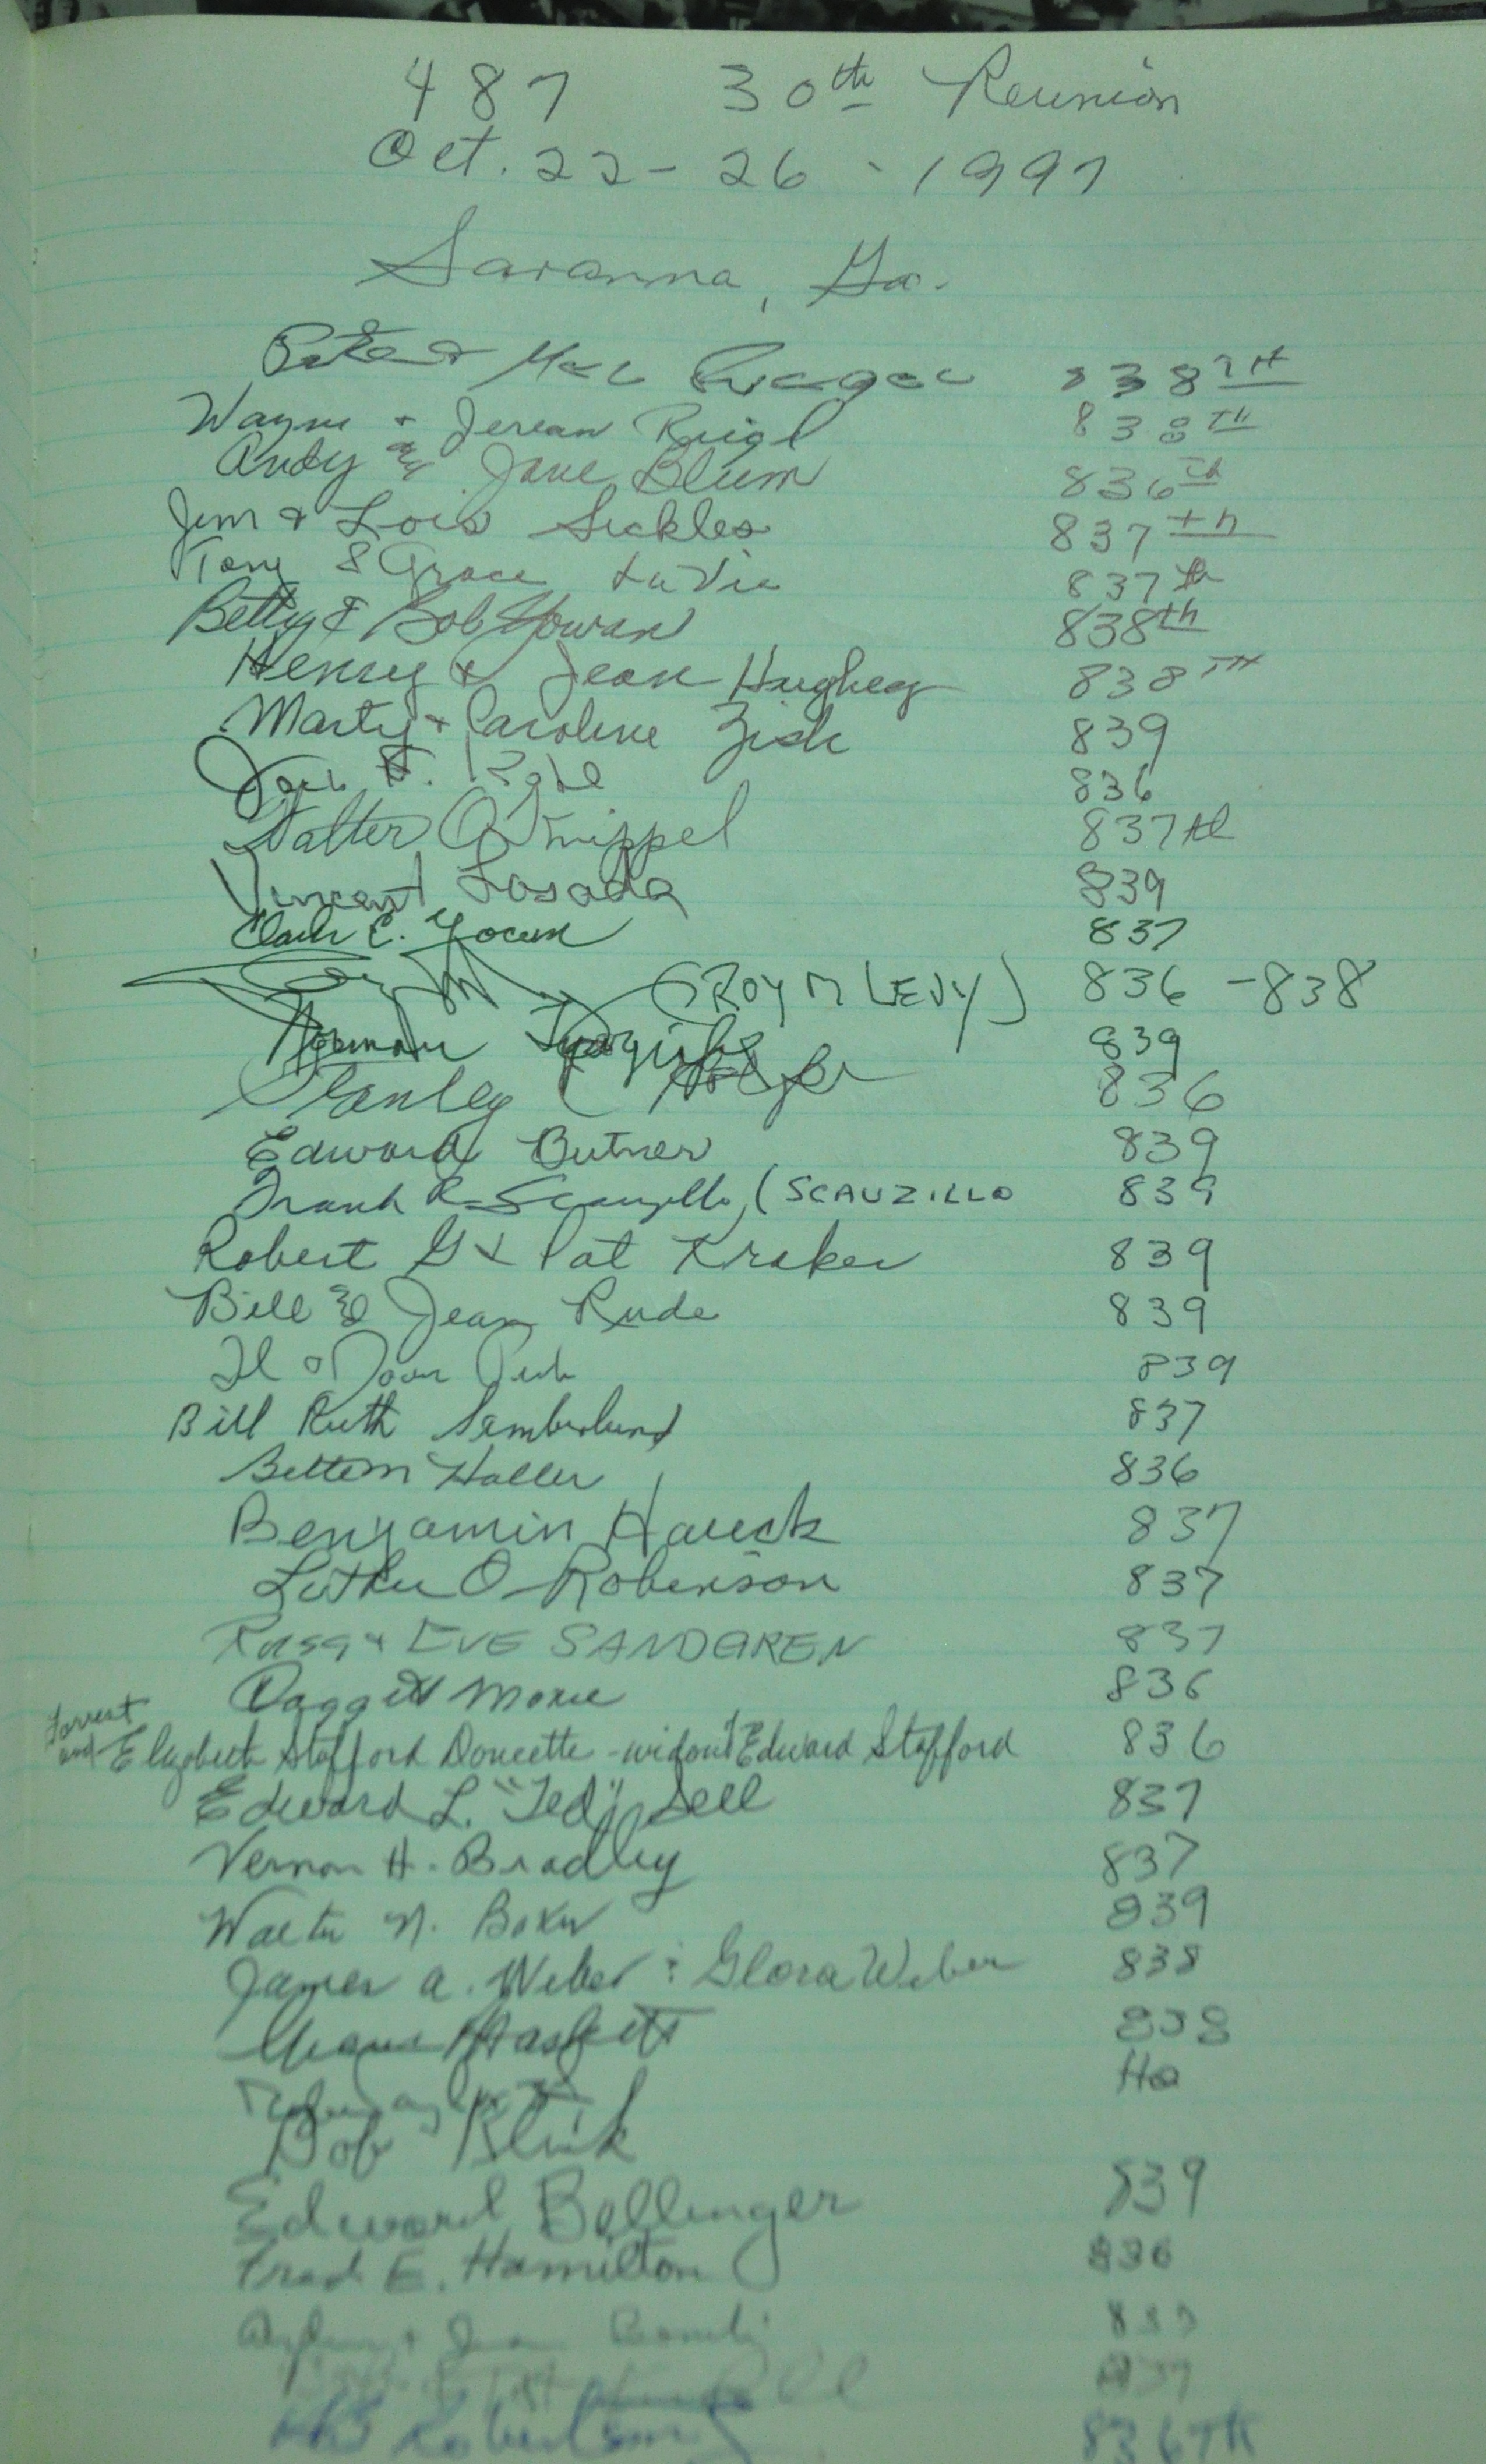 487 30th Reunion
Oct. 22-26-1997
Savanna, Ga.
838TH
Wayne + Jerean Reigl 838TH
Andy & Jane Blum 836th
Jim & Lois Sickles 837th
Tony & Grace LaVie 837th
Betty & Bob Yowan 838th
Henry & Jean Hughey 838TH
Marty + Caroline Zish 839
836
Walter Q Knippel 837th
Vincent Losada 839
E. Yocum 837
(ROY M LEVY) 836 -838
Norman 839
Stanley 836
Edward Butner 839
Frank R Scauzillo (SCAUZILLO 839
Robert G & Pat Kraker 839
Bill & Jean Rude 839
839
Bill Ruth Lamberlund 837
Haller 836
Benjamin Hauck 837
Luther O Roberson 837
Russ + EVE SANDGREN 837
Daggett Moxie 836
Forrest
and Elizabeth Stafford Doucette - widow of Edward Stafford 836
Edward L. "Ted" Sell 837
Vernon H. Bradley 837
Walter N. Boxer 839
James A. Weber & Glora Weber 838
838
HQ
Bob Blink
Edward Bellinger 839
Fred E. Hamilton 836
836TH